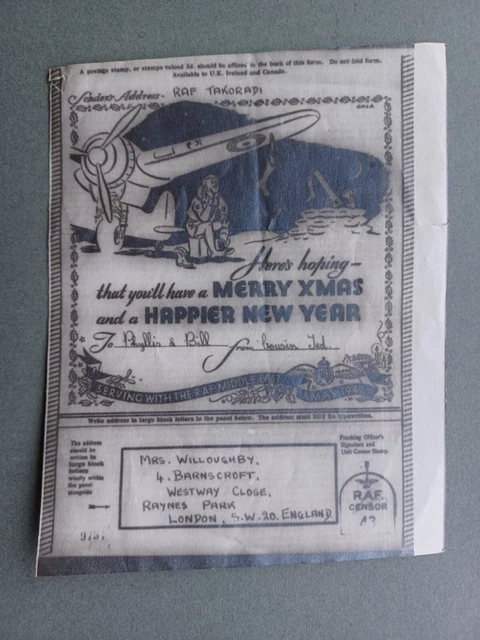 A postage stamp, or stamps valued 3d. should be affixed to the back of this form. Do not fold form.
Available to U.K. Ireland and Canada.
Sender's Address - RAF TAKORADI
Here's hoping -
that you'll have a MERRY XMAS
and a HAPPIER NEW YEAR
To Phyllis & Bill from Cousin Ted
SERVING WITH THE R.A.F. MIDDLE EAST
Write address in large block letters in the panel below. The address must NOT be typewritten.
The address
should be
written in
large block
letters
wholly within
the panel
alongside
MRS. WILLOUGHBY,
4. BARNSCROFT,
WESTWAY CLOSE,
RAYNES PARK
LONDON, S.W.20. ENGLAND
Officer's
Signature and
Unit Censor Stamp.
R.A.F.
CENSOR